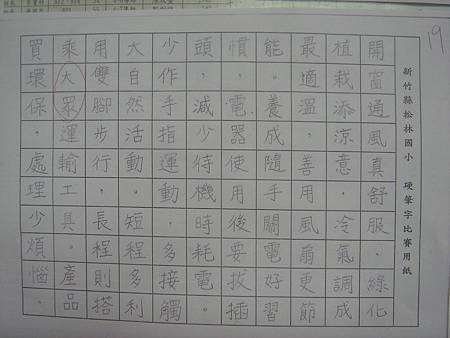 19
新竹縣松林國小 硬筆字比賽用紙
開窗通風真舒服，綠化
植栽添涼意。冷氣調成
最適溫，善用風扇更節
能。養成隨手關電好習
慣，電器使用後要拔插
頭，減少待機時耗電。
少作手指運動，多接觸
大自然活動。短程多利
用雙腳步行，長程則搭
乘大眾運輸工具。產品
買環保，處理少煩惱。